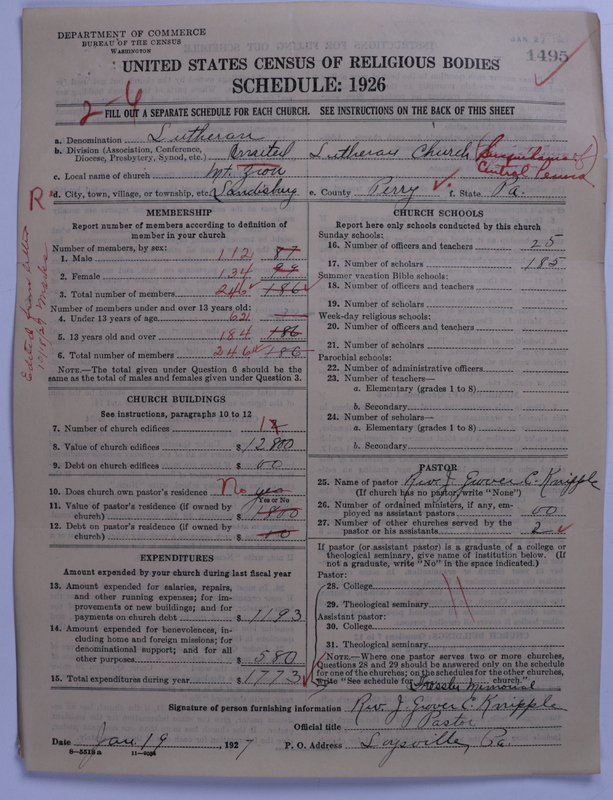 DEPARTMENT OF COMMERCE
BUREAU OF THE CENSUS
WASHINGTON
1495
UNITED STATES CENSUS OF RELIGIOUS BODIES
SCHEDULE: 1926
2-6
FILL OUT A SEPARATE SCHEDULE FOR EACH CHURCH. SEE INSTRUCTIONS ON THE BACK OF THIS SHEET
a. Denomination Lutheran
b. Division (Association, Conference, Diocese, Presbytery, Synod, etc.) United Lutheran Church (Susquehanna of Central Penna
c. Local name of church Mt. Zion
d. City, town, village, or township, etc. Landisburg e. County Perry f. State Pa.
R
Edited from letter
MEMBERSHIP
Report number of members according to definition of member in your church
Number of members, by sex:
1. Male 112 87
2. Female 134 99
3. Total number of members 246 186
Number of members under and over 13 years old:
4. Under 13 years of age 62
5. 13 years old and over 184 186
6. Total number of members 246 186
NOTE.—The total given under Question 6 should be the same as the total of males and females given under Question 3.
CHURCH BUILDINGS
See instructions, paragraphs 10 to 12
7. Number of church edifices 1
8. Value of church edifices $ 12800
9. Debt on church edifices $ 00
10. Does church own pastor's residence? No yes
Yes or No
11. Value of pastor's residence (if owned by church) $ 1800
12. Debt on pastor's residence (if owned by church) $
EXPENDITURES
Amount expended by your church during last fiscal year
13. Amount expended for salaries, repairs, and other running expenses; for improvements or new buildings; and for payments on church debt $ 1193
14. Amount expended for benevolences, including home and foreign missions; for denominational support; and for all other purposes $ 580
15. Total expenditures during year $ 1773
CHURCH SCHOOLS
Report here only schools conducted by this church
Sunday schools:
16. Number of officers and teachers 25
17. Number of scholars 185
Summer vacation Bible schools:
18. Number of officers and teachers
19. Number of scholars
Week-day religious schools:
20. Number of officers and teachers
21. Number of scholars
Parochial schools:
22. Number of administrative officers
23. Number of teachers—
a. Elementary (grades 1 to 8)
b. Secondary
24. Number of scholars—
a. Elementary (grades 1 to 8)
b. Secondary
PASTOR
25. Name of pastor Rev. J. Grover C. Knipple
(If church has no pastor, write "None")
26. Number of ordained ministers, if any, employed as assistant pastors 00
27. Number of other churches served by the pastor or his assistants 2
If pastor (or assistant pastor) is a graduate of a college or theological seminary, give name of institution below. (If not a graduate, write "No" in the space indicated.)
Pastor:
28. College
29. Theological seminary
Assistant pastor:
30. College
31. Theological seminary
NOTE.—Where one pastor serves two or more churches, Questions 28 and 29 should be answered only on the schedule for one of the churches; on the schedules for the other churches, write "See schedule for Tressler Memorial church."
Signature of person furnishing information Rev. J. Grover C. Knipple
Official title Pastor
Date Jan. 19, 1927 P. O. Address Loysville, Pa.
8—5518a 11—9094